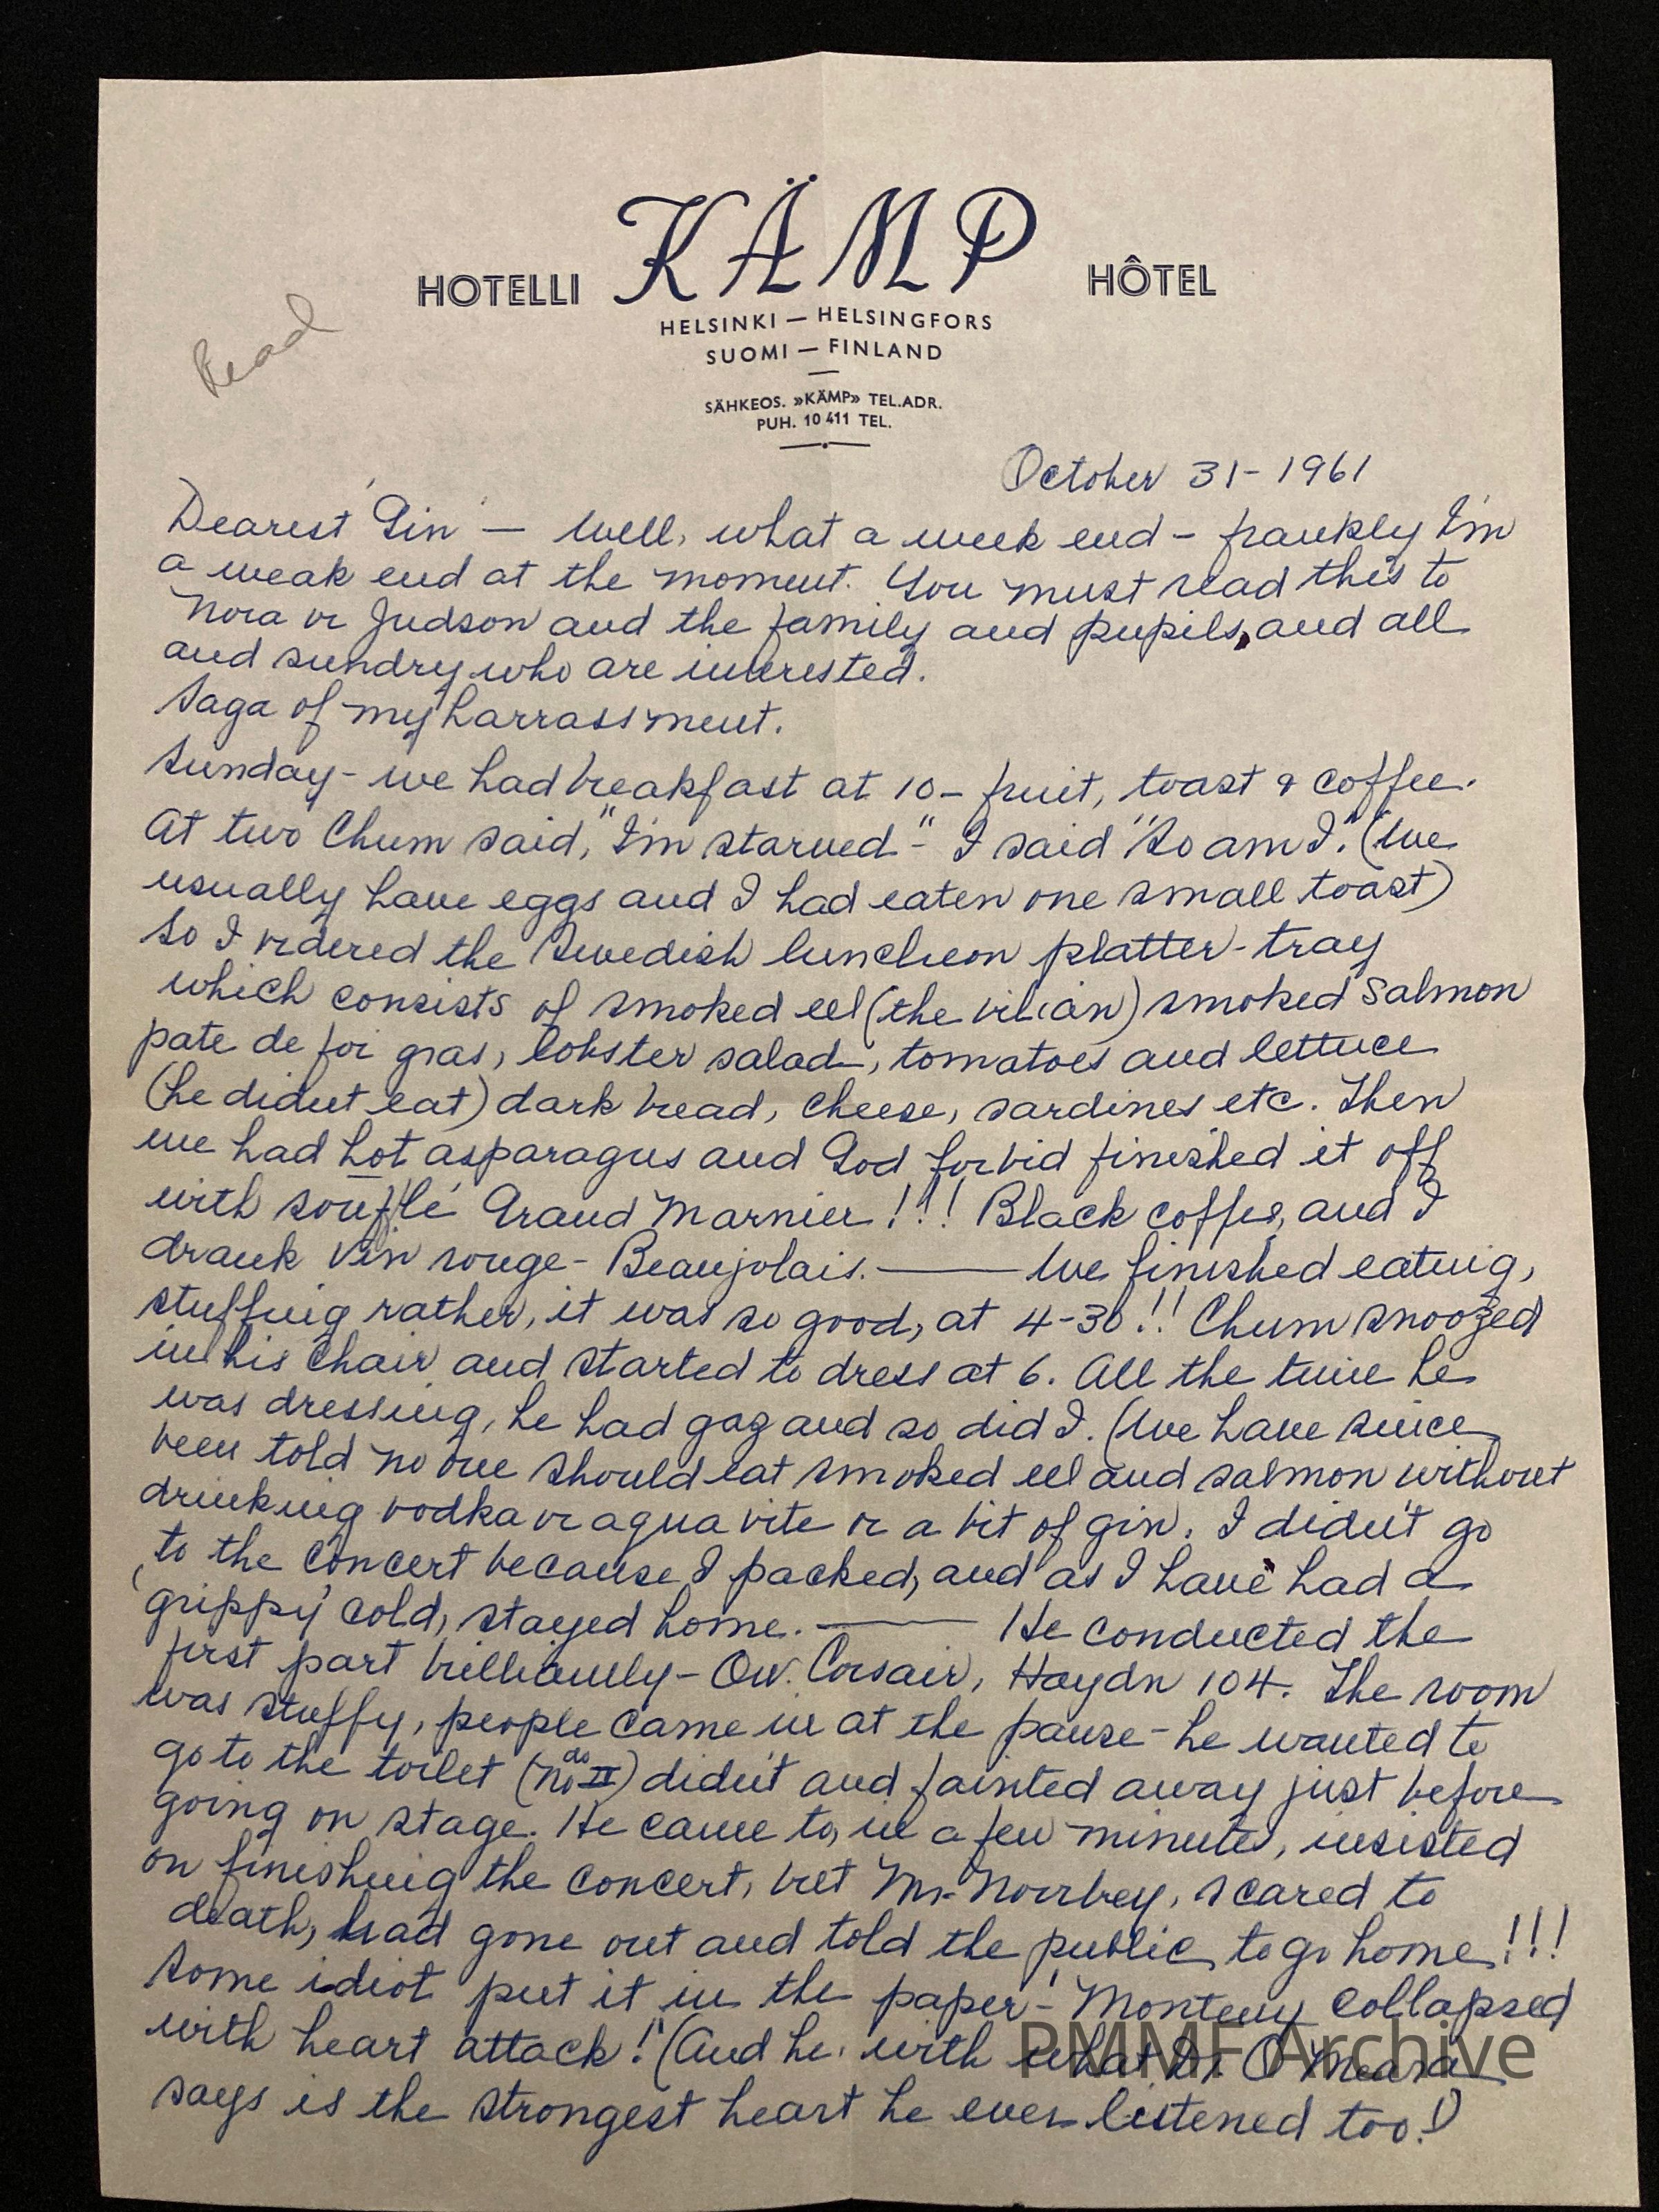 Read
HOTELLI KÄMP HÔTEL
HELSINKI — HELSINGFORS
SUOMI — FINLAND
SÄHKEOS. »KÄMP» TEL.ADR.
PUH. 10 411 TEL.
October 31-1961
Dearest Gin — Well, what a week end - frankly I'm
a weak end at the moment. You must read this to
Nora or Judson and the family and pupils, and all
and sundry who are interested.
Saga of my harrassment.
Sunday - we had breakfast at 10 - fruit, toast & coffee.
At two Chum said, "I'm starved -" I said "So am I". (We
usually have eggs and I had eaten one small toast)
So I ordered the Swedish luncheon platter-tray
which consists of smoked eel (the vilian) smoked salmon
pate de foi gras, lobster salad, tomatoes and lettuce
(he didn't eat) dark bread, cheese, sardines etc. Then
we had hot asparagus and God forbid finished it off
with soufflé Grand Marnier!!! Black coffee, and I
drank vin rouge - Beaujolais. — We finished eating,
stuffing rather, it was so good, at 4-30!! Chum snoozed
in his chair and started to dress at 6. All the time he
was dressing, he had gaz and so did I. (We have since
been told no one should eat smoked eel and salmon without
drinking vodka or aqua vite or a bit of gin. I didn't go
to the concert because I packed, and as I have had a
'grippy' cold, stayed home. — He conducted the
first part brilliantly - Ov. Corsair, Haydn 104. The room
was stuffy, people came in at the pause - he wanted to
go to the toilet (do no II) didn't and fainted away just before
going on stage. He came to, in a few minutes, insisted
on finishing the concert, but Mr. Norrbey, scared to
death, had gone out and told the public to go home!!!
Some idiot put it in the paper - "Monteux collapsed
with heart attack!" (And he, with what Dr O'Meara
says is the strongest heart he ever listened too!)
PMMF Archive